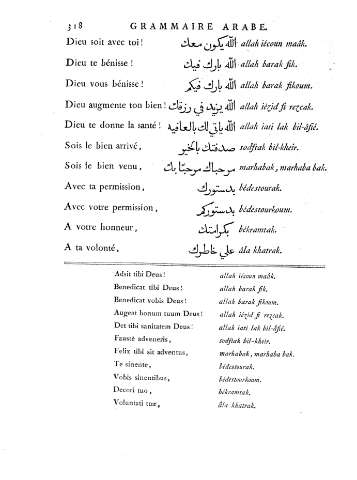 318 GRAMMAIRE ARABE.
Dieu soit avec toi! الله يكون معك allah iécoun maâk.
Dieu te bénisse! الله بارك فيك allah barak fik.
Dieu vous bénisse! الله بارك فيكم allah barak fikoum.
Dieu augmente ton bien! الله يزيد في رزقك allah iézid fi rezcak.
Dieu te donne la santé! الله ياتي لك بالعافية allah iati lak bil-âfié.
Sois le bien arrivé, صدفتك بالخير sodftak bil-kheir.
Sois le bien venu, مرحباك مرحبا بك marhabak, marhaba bak.
Avec ta permission, بدستورك bédestourak.
Avec votre permission, بدستوركم bédestourkoum.
A votre honneur, بكرامتك békramtak.
A ta volonté, على خاطرك âla khatrak.
Adsit tibi Deus! allah iécoun maâk.
Benedicat tibi Deus! allah barak fik.
Benedicat vobis Deus! allah barak fikoum.
Augeat bonum tuum Deus! allah iézid fi rezcak.
Det tibi sanitatem Deus! allah iati lak bil-âfié.
Fauste advenens, sodftak bil-kheir.
Felix tibi sit adventus, marhabak, marhaba bak.
Te sinente, bédestourak.
Vobis sinentibus, bédestourkoom.
Decori tuo, békramtak.
Voluntati tuæ, âla khatrak.